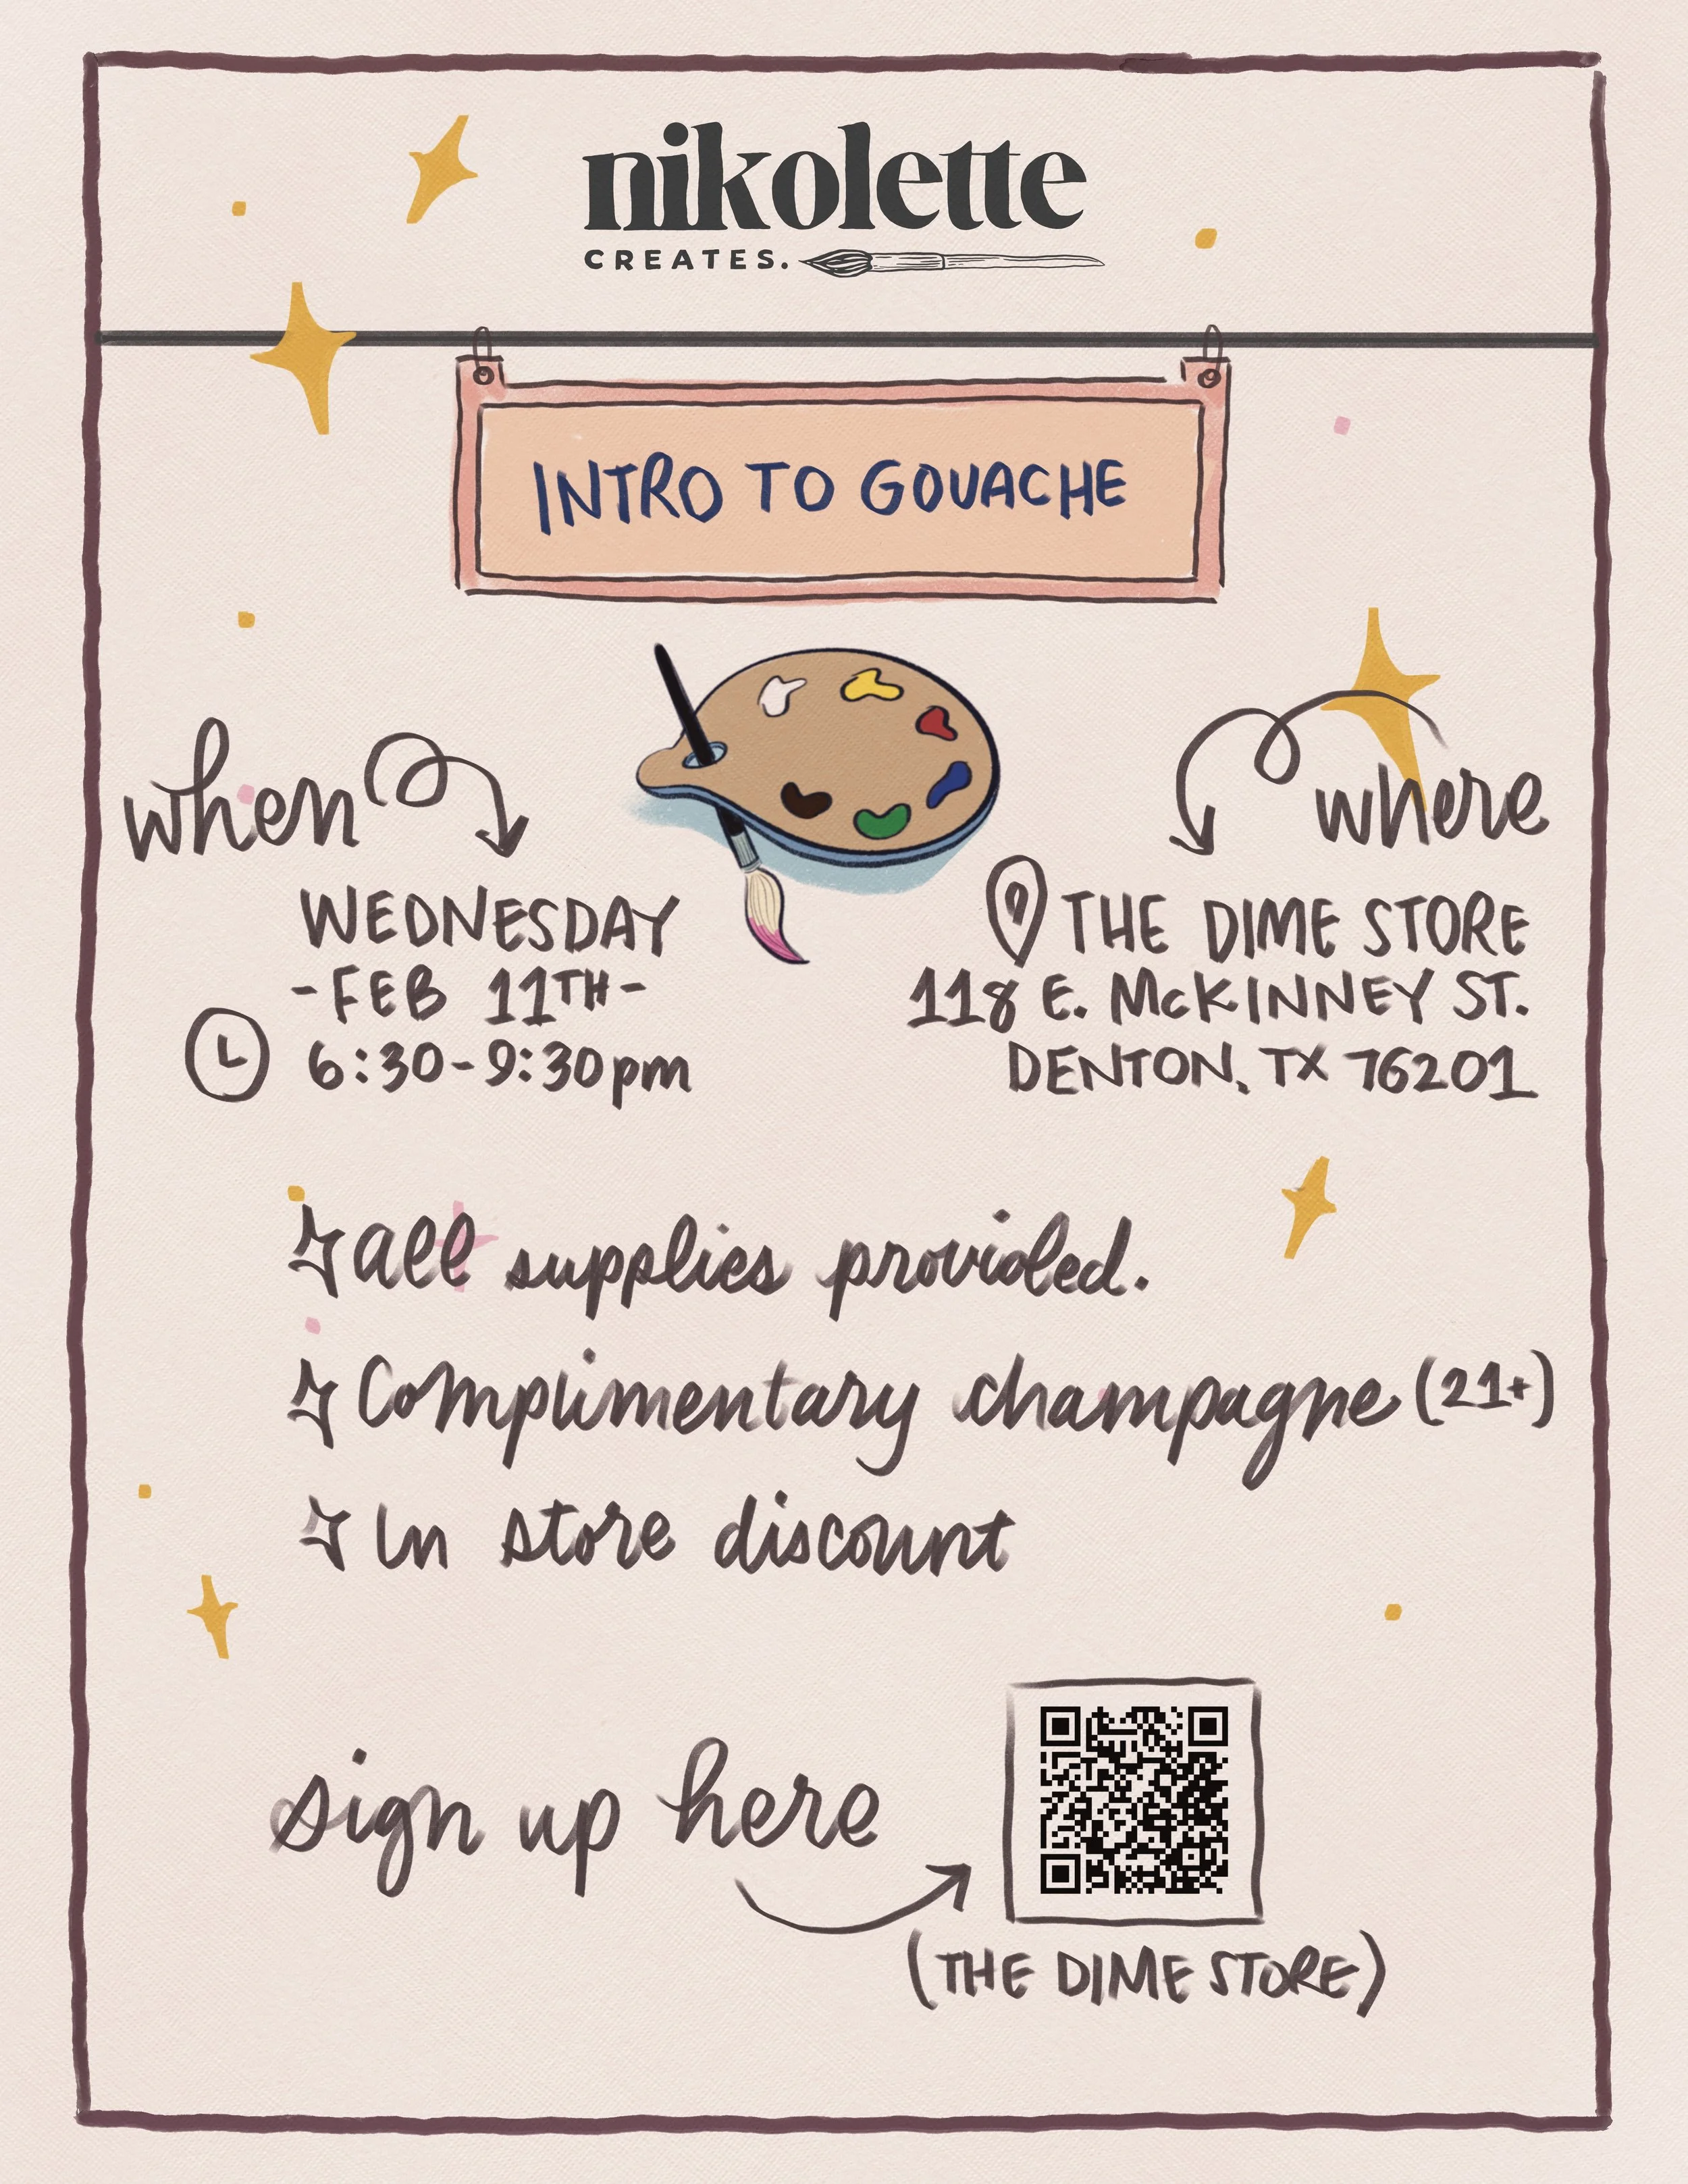 nikolette
CREATES.
INTRO TO GOUACHE
when
WEDNESDAY
-FEB 11TH-
6:30-9:30pm
where
THE DIME STORE
118 E. McKINNEY ST.
DENTON, TX 76201
all supplies provided.
Complimentary champagne (21+)
In store discount
sign up here
(THE DIME STORE)